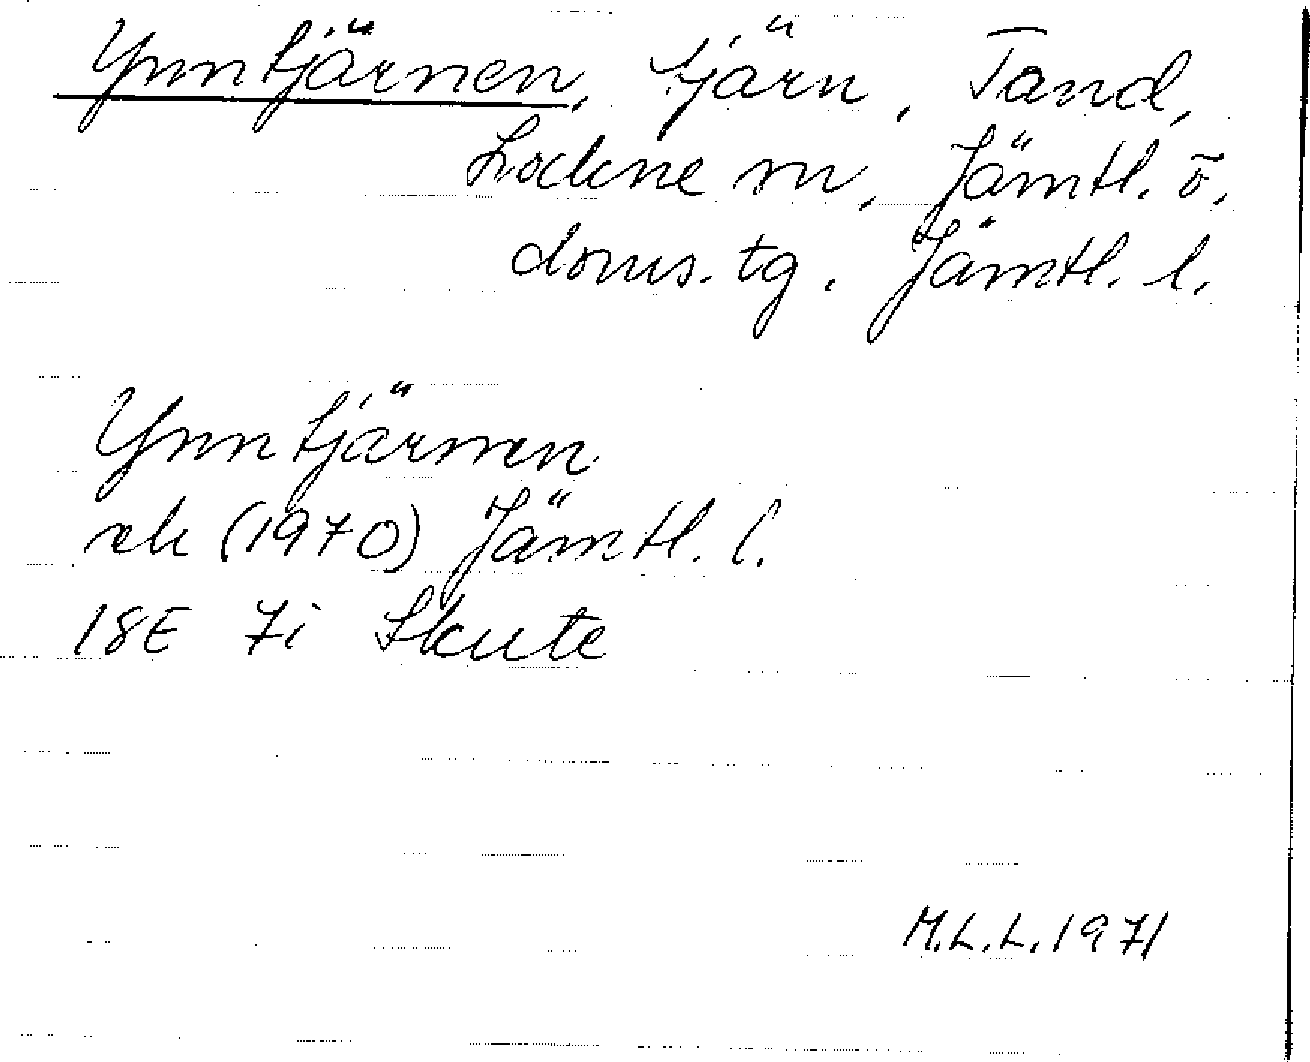 Ynntjärnen, tjärn, Tand,
Lockne sn, Jämtl. ö.
doms. tg. Jämtl. l.
Ynntjärnen
rek (1970) Jämtl. l.
18E 7i Skute
M.L.L. 1971